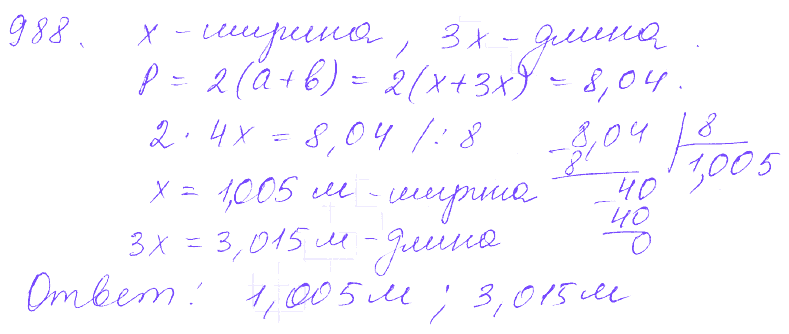 988. x - ширина, 3x - длина.
P = 2(a+b) = 2(x+3x) = 8,04.
2 · 4x = 8,04 /: 8
x = 1,005 м - ширина
3x = 3,015 м - длина
8,04 | 8
- 8 1,005
- 40
40
0
Ответ: 1,005 м ; 3,015 м